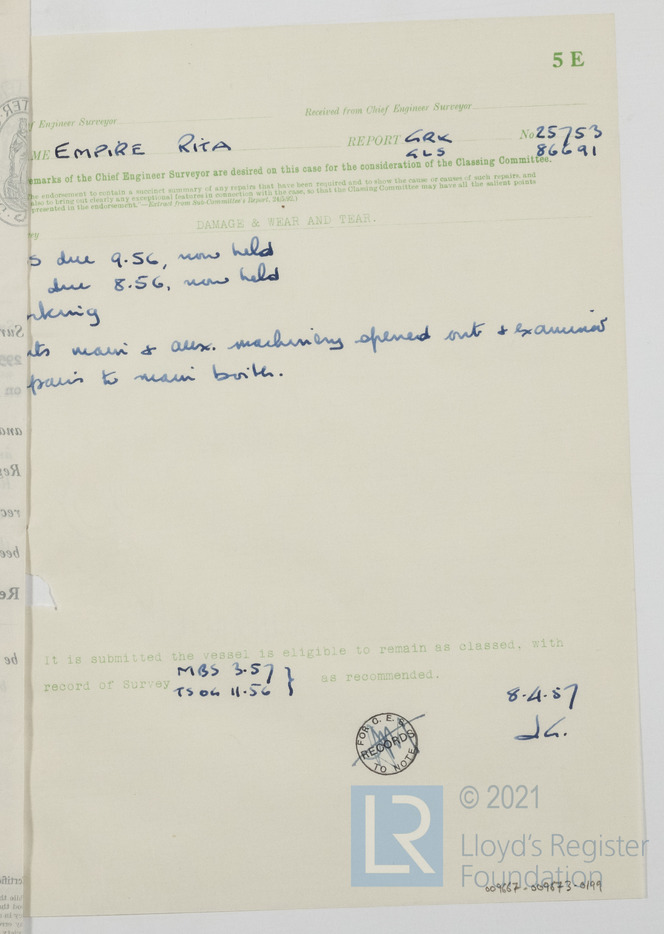 5 E
f Engineer Surveyor
Received from Chief Engineer Surveyor
ME EMPIRE RITA REPORT GRK No 25753
GLS 86691
emarks of the Chief Engineer Surveyor are desired on this case for the consideration of the Classing Committee.
he endorsement to contain a succinct summary of any repairs that have been required and to show the cause or causes of such repairs, and
also to bring out clearly any exceptional features in connection with the case, so that the Classing Committee may have all the salient points
presented in the endorsement."—Extract from Sub-Committee's Report,
DAMAGE & WEAR AND TEAR.
vey
s due 9.56, now held
due 8.56, now held
nking
ts main & aux. machinery opened out & examined
pairs to main boiler.
It is submitted the vessel is eligible to remain as classed, with
record of Survey MBS 3.57 } as recommended.
TS OG 11.56
8.4.57
FOR C. E. S.'S
RECORDS
TO NOTE
© 2021
LR
Lloyd's Register
Foundation
009667-009673-0199